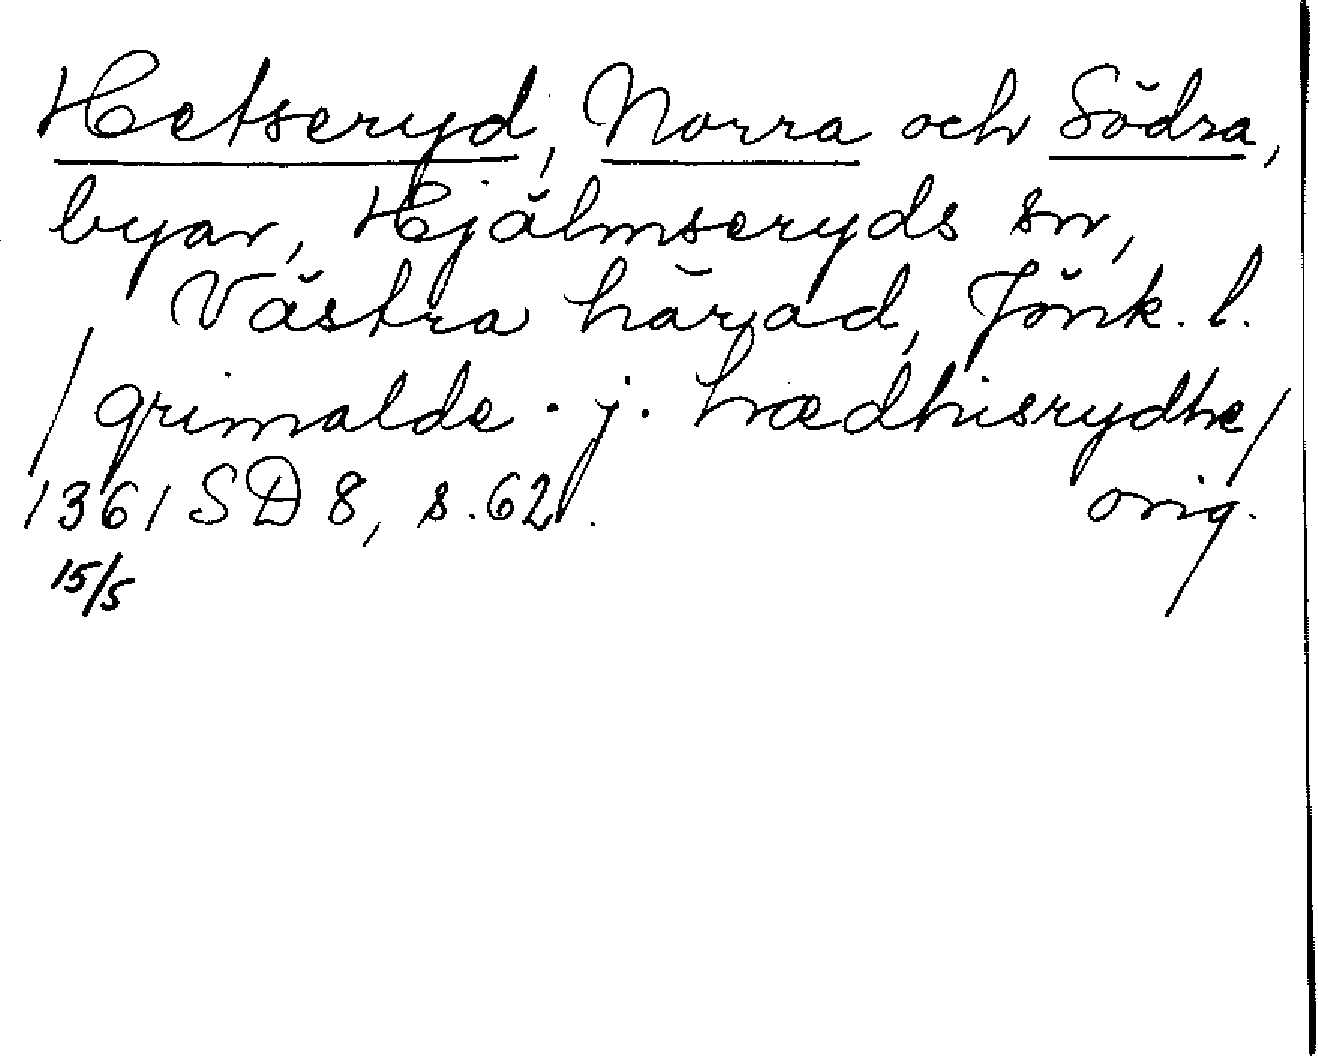 Hetseryd, Norra och Södra,
byar, Hjälmseryds sn,
Västra härad, Jönk. l.
/grimalde . j. hædhisrydhe/
1361 SD 8, s. 62. orig.
15/5